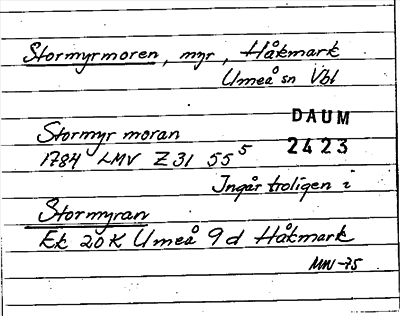 Stormyrmoren, myr, Håkmark
Umeå sn Vbl
DAUM
Stormyr moran
2423
1784 LMV Z31 55⁵
Ingår troligen i
Stormyran
Ek 20K Umeå 9d Håkmark
MW-75